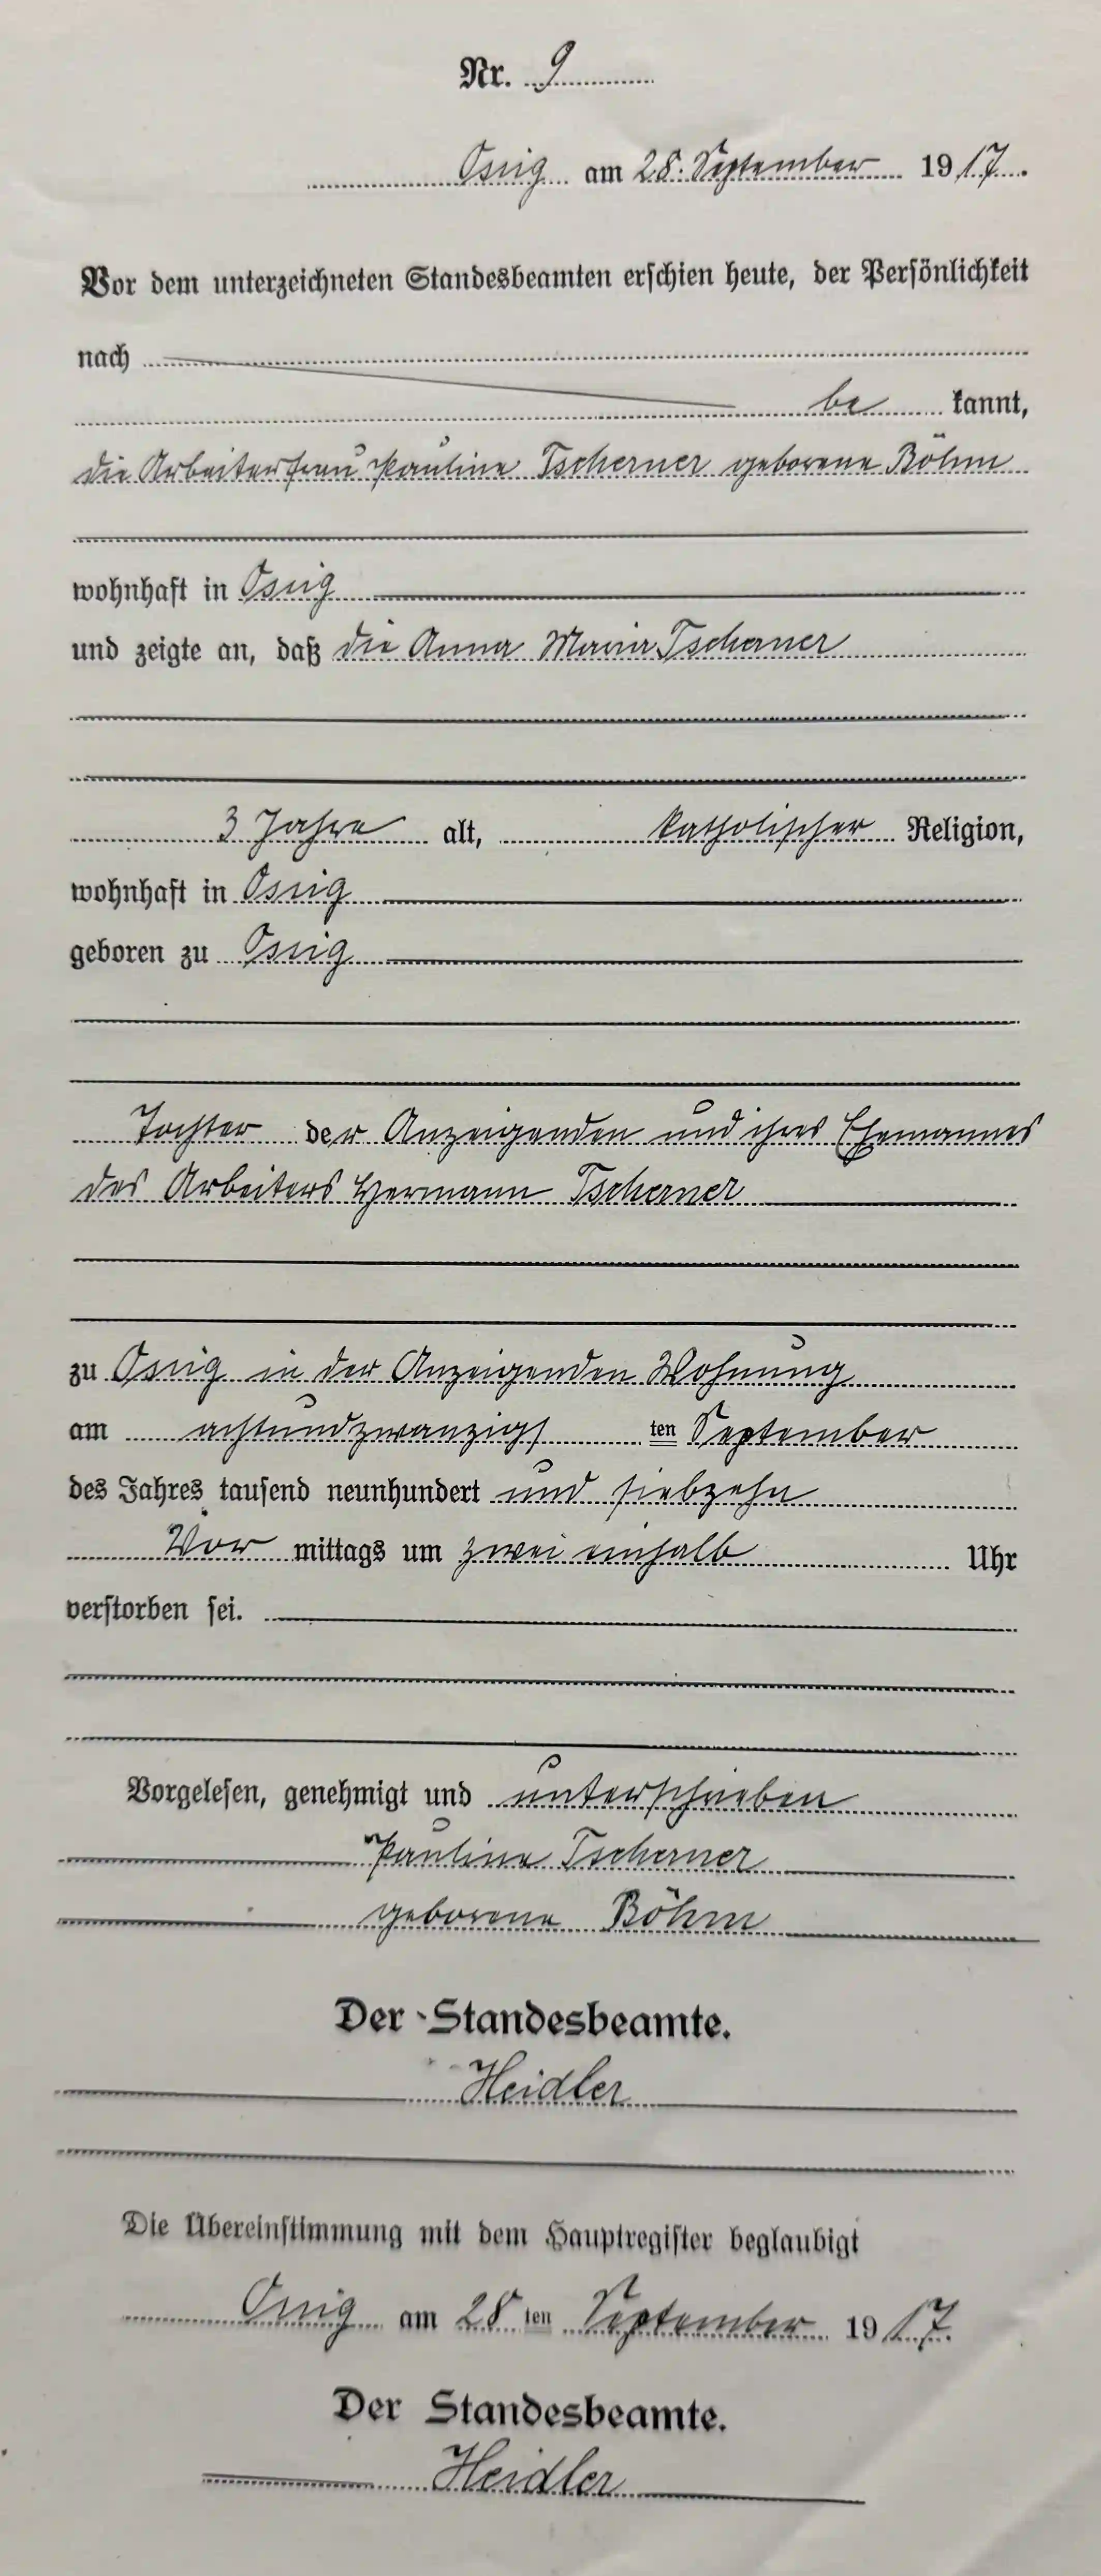 Nr. 9
Ossig am 28. September 1917.
Vor dem unterzeichneten Standesbeamten erschien heute, der Persönlichkeit
nach
be kannt,
die Arbeiterfrau Pauline Tscherner geborene Böhm
wohnhaft in Ossig
und zeigte an, daß die Anna Maria Tscherner
3 Jahre alt, katholischer Religion,
wohnhaft in Ossig
geboren zu Ossig
Tochter der Anzeigenden und ihres Ehemannes
des Arbeiters Hermann Tscherner
zu Ossig in der Anzeigenden Wohnung
am achtundzwanzigs ten September
des Jahres tausend neunhundert und siebzehn
Vor mittags um zwei einhalb Uhr
verstorben sei.
Vorgelesen, genehmigt und unterschrieben
Pauline Tscherner
geborene Böhm
Der Standesbeamte.
Heidler
Die Übereinstimmung mit dem Hauptregister beglaubigt
Ossig am 28 ten September 1917.
Der Standesbeamte.
Heidler